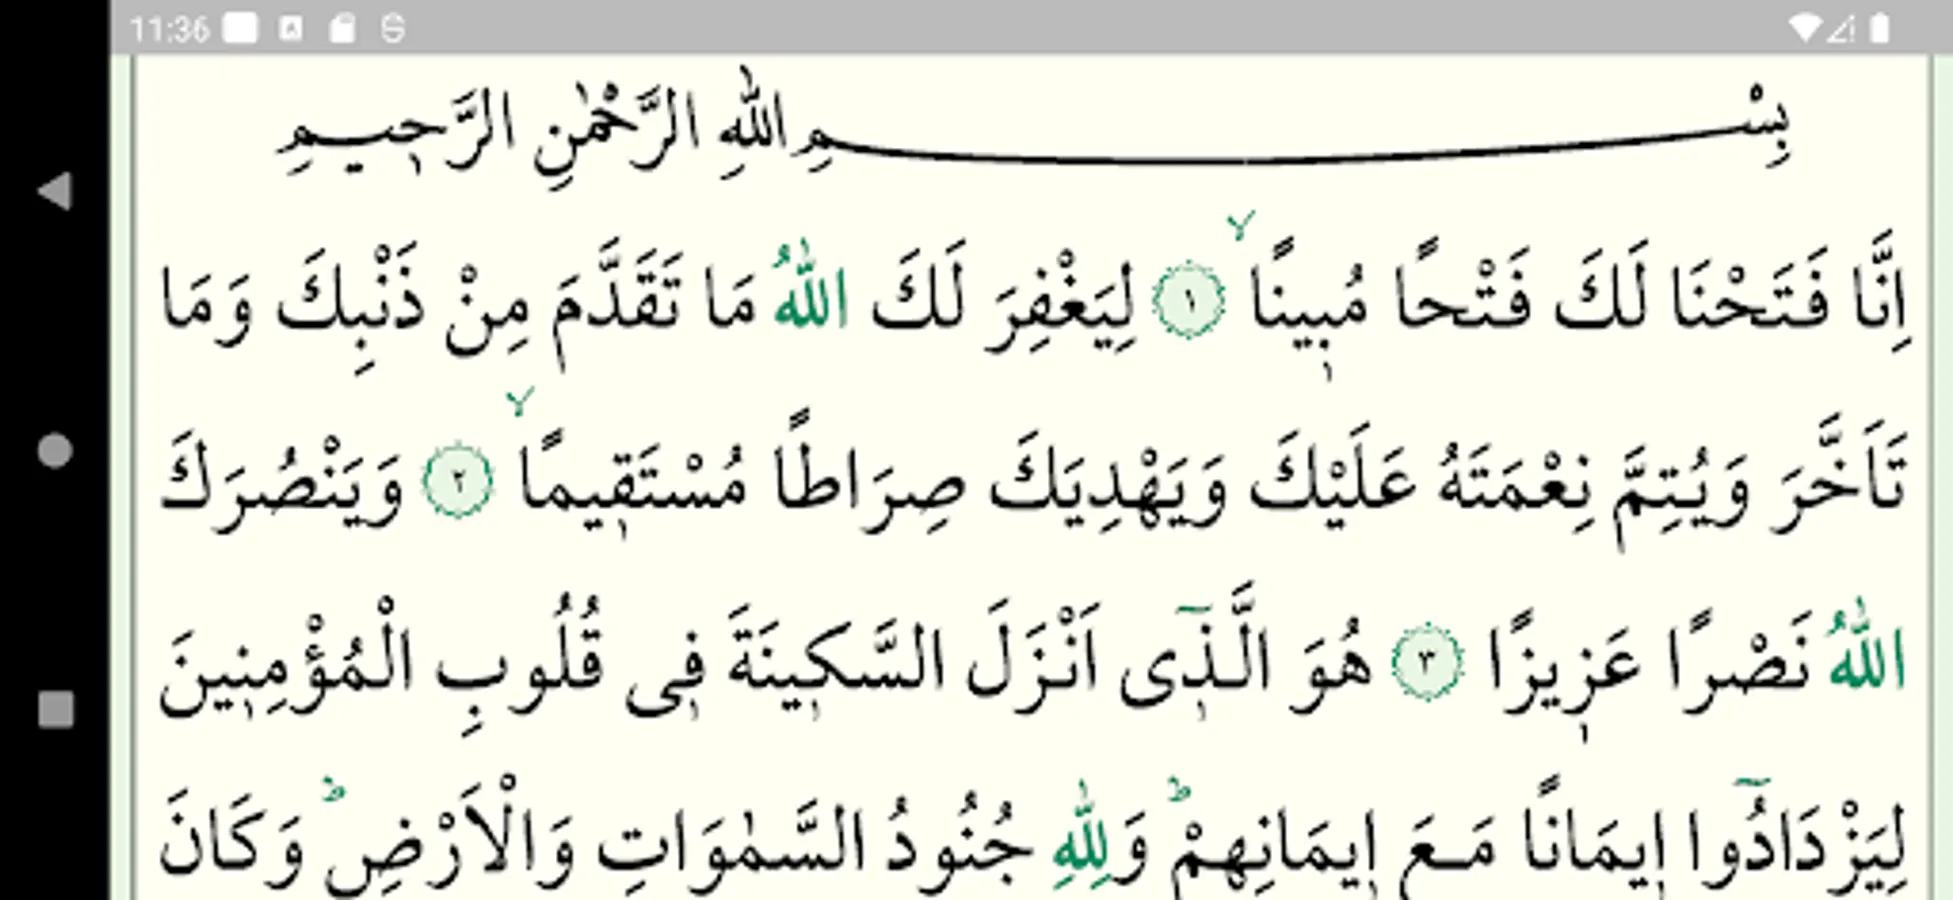 11:36
بِسْمِ اللّٰهِ الرَّحْمٰنِ الرَّحٖيمِ
اِنَّا فَتَحْنَا لَكَ فَتْحًا مُبٖينًاۙ ﴿١﴾ لِيَغْفِرَ لَكَ اللّٰهُ مَا تَقَدَّمَ مِنْ ذَنْبِكَ وَمَا
تَاَخَّرَ وَيُتِمَّ نِعْمَتَهُ عَلَيْكَ وَيَهْدِيَكَ صِرَاطًا مُسْتَقٖيمًاۙ ﴿٢﴾ وَيَنْصُرَكَ
اللّٰهُ نَصْرًا عَزٖيزًا ﴿٣﴾ هُوَ الَّذٖٓى اَنْزَلَ السَّكٖينَةَ فٖى قُلُوبِ الْمُؤْمِنٖينَ
لِيَزْدَادُٓوا اٖيمَانًا مَعَ اٖيمَانِهِمْؕ وَلِلّٰهِ جُنُودُ السَّمٰوَاتِ وَالْاَرْضِؕ وَكَانَ